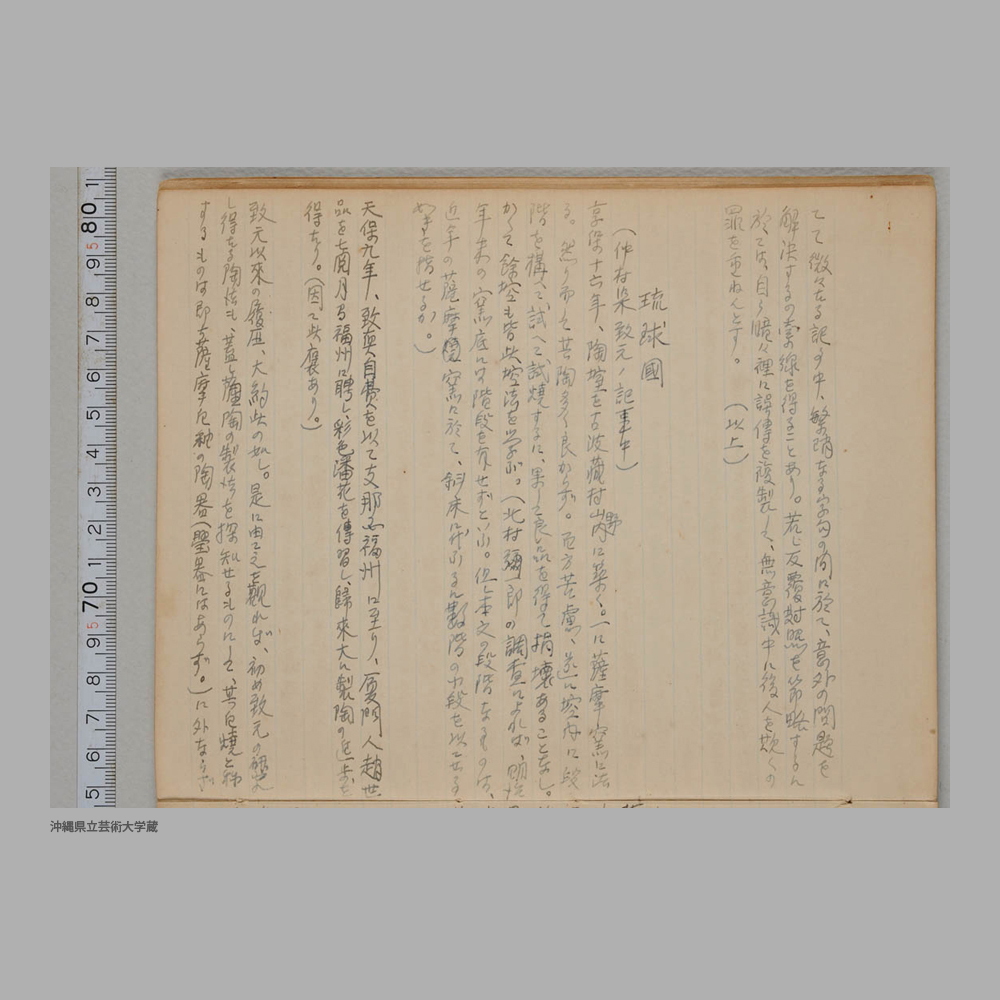 てて微々たる記事中、繁瑣なる字句の間に於て、意外の問題を
解決するの索線を得ることあり。若し反覆対照を節略するに
於ては、自ら暗々裡に誤傳を複製して、無意識中に後人を欺くの
罪を重ねんとす。 (以上)
琉球國
(仲村渠致元ノ記事中)
享保十六年、陶窯を古波藏村湧田野に築く。一に薩摩窯に法
る。然り而して其陶多く良からず。百方苦慮、遂に窯内に段
階を構へ、試へて試焼するに、果して良品を得て損壊あることなし。
かくて餘窯も皆此窯法を学ぶ。(北村彌一郎の調査によれば、明治
年末の窯底には階段を有せずといふ。但し本文の段階なるものは、
近年の薩摩国窯に於て、斜床に代ふるに数階の小段を以てせる
如きを指せるか。)
天保九年、致真自費を以て支那福州に至り、厦門人趙世
品を七閲月間福州に聘し彩色藩花を傳習し、歸來大に製陶の進歩を
得たり。(因て此褒あり。)
致元以來の履歴、大約此の如し。是に由て之を観れば、初め致元の
し得たる陶技も、蓋し薩陶の製技を探知せるものにして、其白焼と称
するものは即ち薩摩白釉の陶器(甆器にはあらず。)に外ならざ
沖縄県立芸術大学蔵